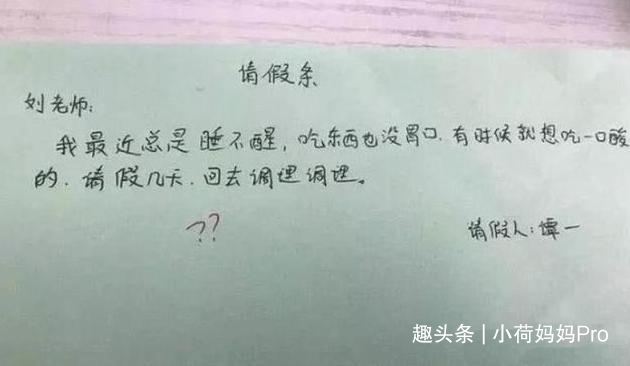 请假条
刘老师:
我最近总是睡不醒,吃东西也没胃口.有时候就想吃一口酸
的.请假几天.回去调理调理。
??
请假人:谭一
趣头条 | 小荷妈妈Pro